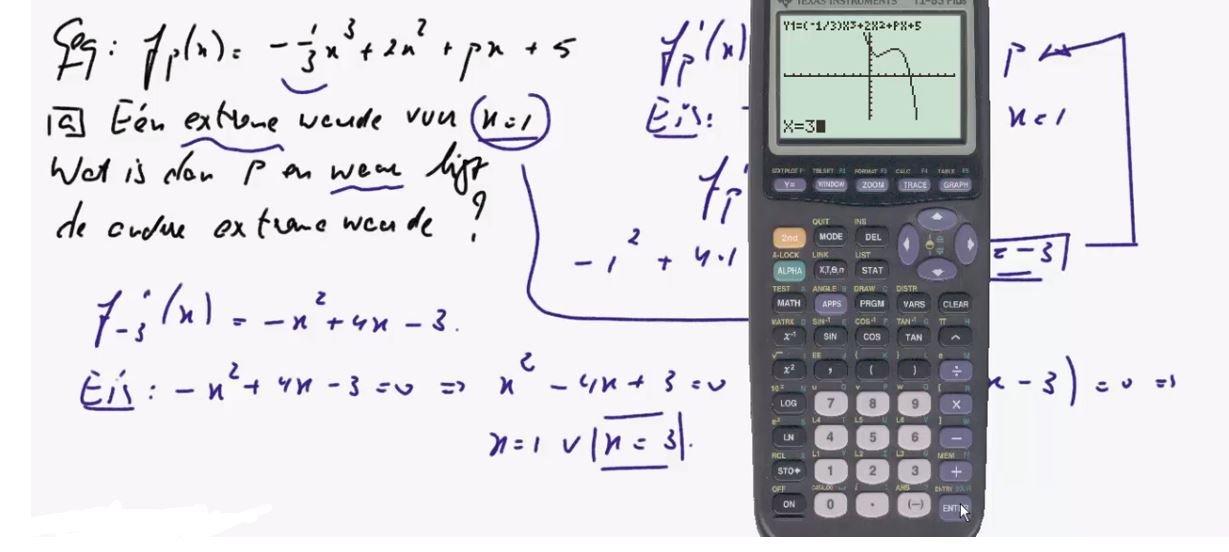 Geg: fp(x) = -1/3x³ + 2x² + px + 5
1a) Eén extreme waarde voor x=1
Wat is dan p en waar ligt
de andere extreme waarde ?
fp'(x)
p
Eis:
x=1
fp'
-1² + 4·1
= -3
f-3'(x) = -x² + 4x - 3.
Eis: -x² + 4x - 3 = 0 => x² - 4x + 3 = 0
x - 3) = 0 =>
x=1 v x = 3.
TEXAS INSTRUMENTS TI-83 Plus
Y1=(-1/3)X3+2X2+PX+5
X=3
STATPLOT F1 TBLSET F2 FORMAT F3 CALC F4 TABLE F5
Y= WINDOW ZOOM TRACE GRAPH
QUIT INS
2nd MODE DEL
A-LOCK LINK LIST
ALPHA X,T,θ,n STAT
TEST A ANGLE B DRAW C DISTR
MATH APPS PRGM VARS CLEAR
MATRX D SIN-1 E COS-1 F TAN-1 G π H
x-1 SIN COS TAN ^
x² , ( ) ÷
LOG 7 8 9 ×
LN 4 5 6 −
RCL X L1 Y L2 Z L3 MEM
STO 1 2 3 +
OFF CATALOG ANS ENTRY SOLVE
ON 0 . (-) ENTER